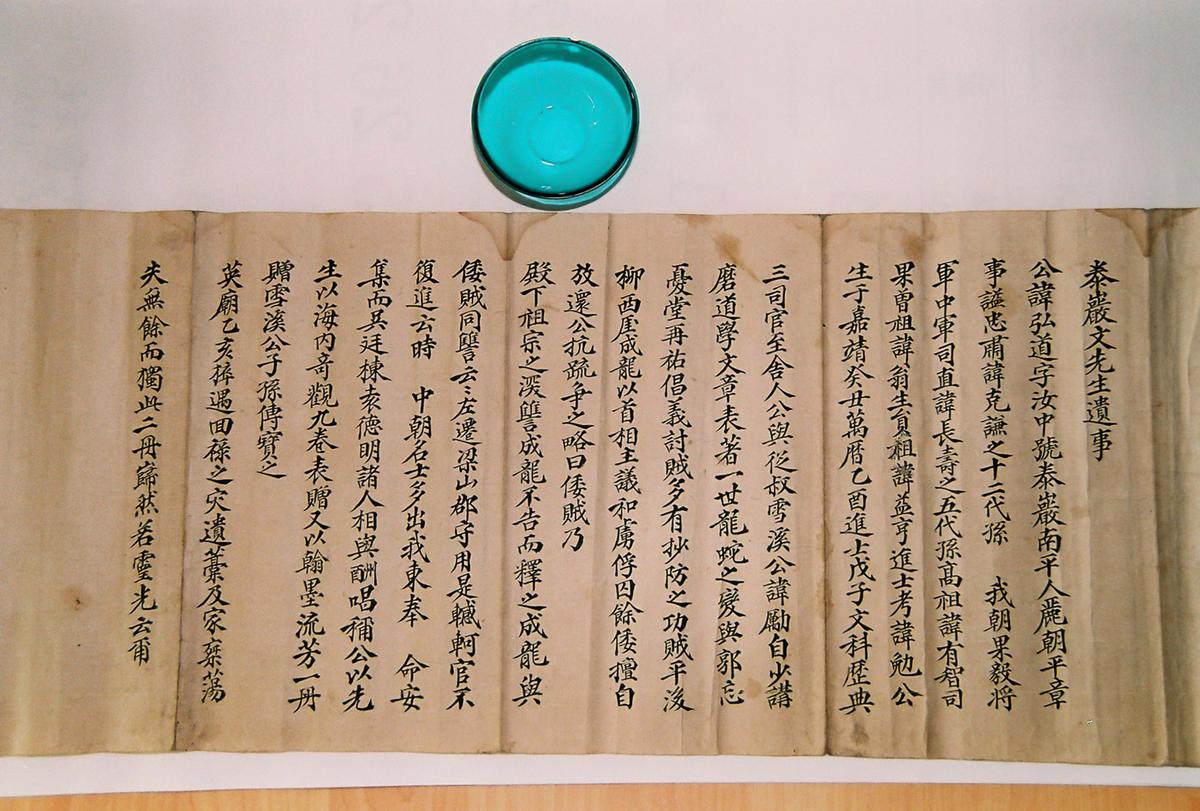 泰巖文先生遺事
公諱弘道字汝中號泰巖南平人麗朝平章
事謚忠肅諱克謙之十二代孫 我朝果毅將
軍中軍司直諱長壽之五代孫高祖諱有智司
果曾祖諱翁生員祖諱益亨進士考諱勉公
生于嘉靖癸丑萬曆乙酉進士戊子文科歷典
三司官至舍人公與從叔雪溪公諱勵自少講
磨道學文章表著一世龍蛇之變與郭忘
憂堂再祐倡義討賊多有抄防之功賊平後
柳西厓成龍以首相主議和虜俘囚餘倭擅自
放還公抗疏爭之略曰倭賊乃
殿下祖宗之深讐成龍不告而釋之成龍與
倭賊同讐云〻左遷梁山郡守用是轗軻官不
復進云時 中朝名士多出我東奉 命安
集而吳廷棟袁德明諸人相與酬唱稱公以先
生以海內奇觀九卷表贈又以翰墨流芳一冊
贈雪溪公子孫傳寶之
英廟乙亥猝遇回祿之灾遺藁及家乘蕩
失無餘而獨此二冊歸然若靈光云爾